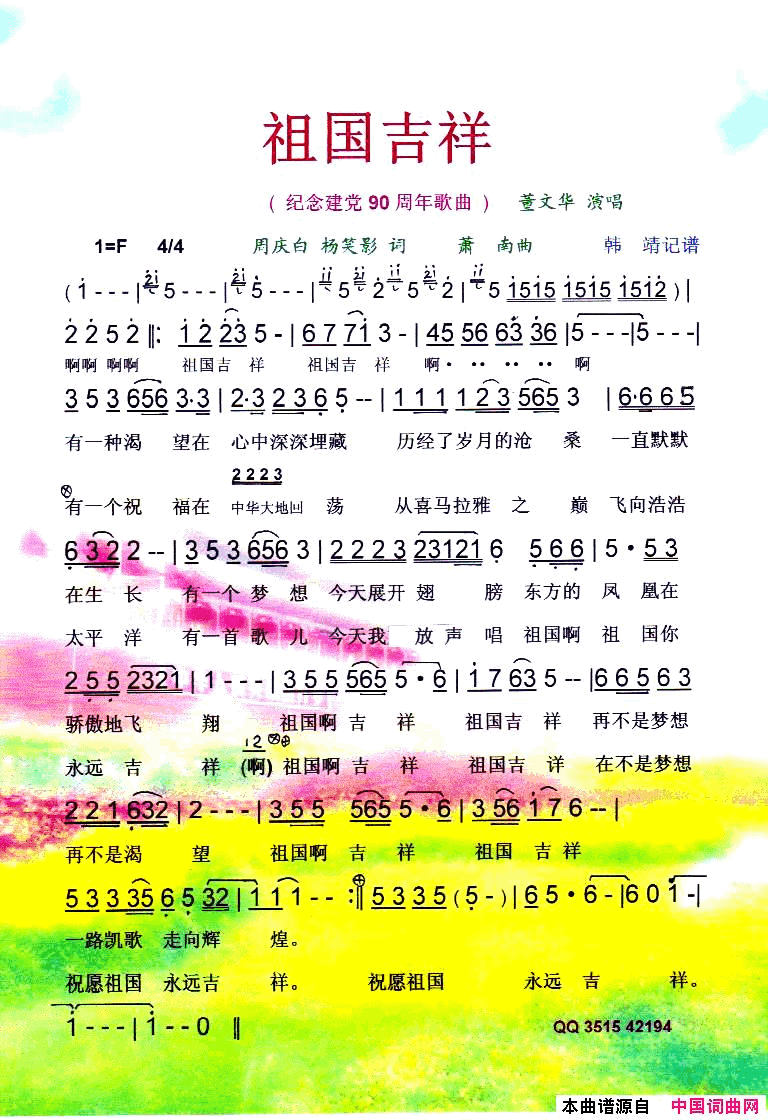 祖国吉祥
( 纪念建党 90 周年歌曲 ) 董文华 演唱
1=F 4/4 周庆白 杨笑影 词 萧 南曲 韩 靖记谱
(1---|5---|5---|5 2 5 2|5 1515 1515 1512)|
2 2 5 2 ‖: 1 2 23 5 -|6 7 71 3 -|45 56 63 36|5---|5---|
啊啊 啊啊 祖国吉 祥 祖国吉 祥 啊 · ·· ·· ·· 啊
3 5 3 656 3·3|2·3 2 3 6 5 --|1 1 1 1 2 3 565 3 |6·6 6 5
有一种渴 望在 心中深深埋藏 历经了岁月的沧 桑 一直默默
2 2 2 3
有一个祝 福在 中华大地回 荡 从喜马拉雅 之 巅 飞向浩浩
6 32 2 --|3 5 3 656 3|2 2 2 3 23121 6 5 6 6|5·53
在生 长 有一个 梦 想 今天展开 翅 膀 东方的 凤 凰在
太平 洋 有一首 歌 儿 今天我 放 声 唱 祖国啊 祖 国你
2 5 5 2321|1---|3 5 5 565 5·6|1 7 63 5 --|6 6 5 6 3
骄傲地飞 翔 祖国啊 吉 祥 祖国吉 祥 再不是梦想
12
永远 吉 祥 (啊) 祖国啊 吉 祥 祖国吉 详 在不是梦想
2 2 1 632|2---|3 5 5 565 5·6|3 56 1 7 6 --|
再不是渴 望 祖国啊 吉 祥 祖国 吉 祥
5 3 3 35 6 5 32|1 1 1 -- :‖ 5 3 3 5 (5 -)|6 5·6 -|6 0 1 -|
一路凯歌 走向辉 煌。
祝愿祖国 永远吉 祥。 祝愿祖国 永远 吉 祥。
1---|1--0 ‖
QQ 3515 42194
本曲谱源自 中国词曲网